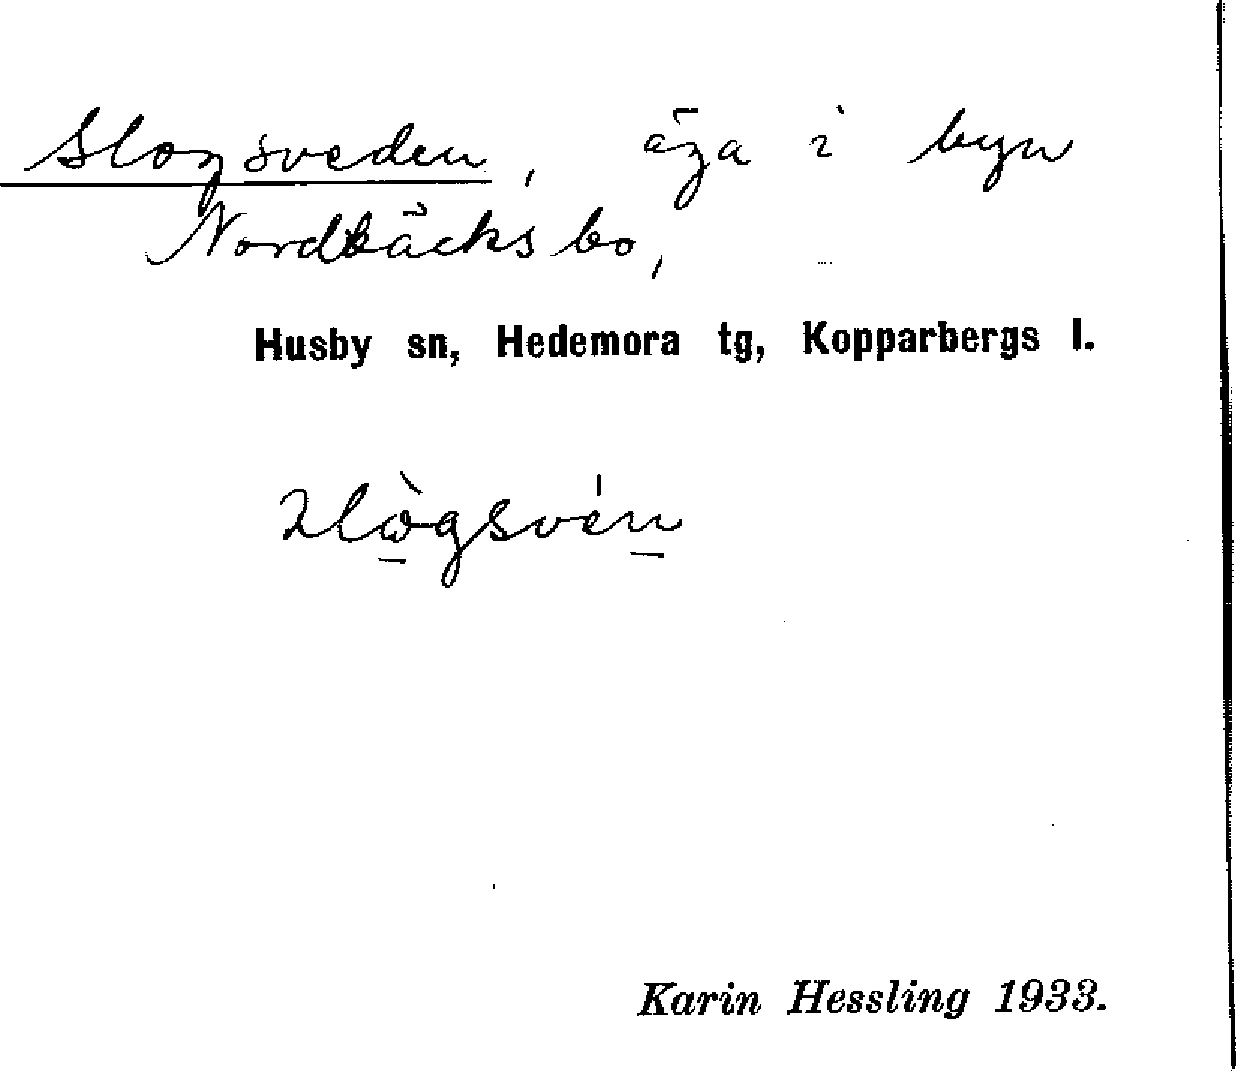 Slogsveden, äga i byn
Nordbäcksbo,
Husby sn, Hedemora tg, Kopparbergs l.
Karin Hessling 1933.